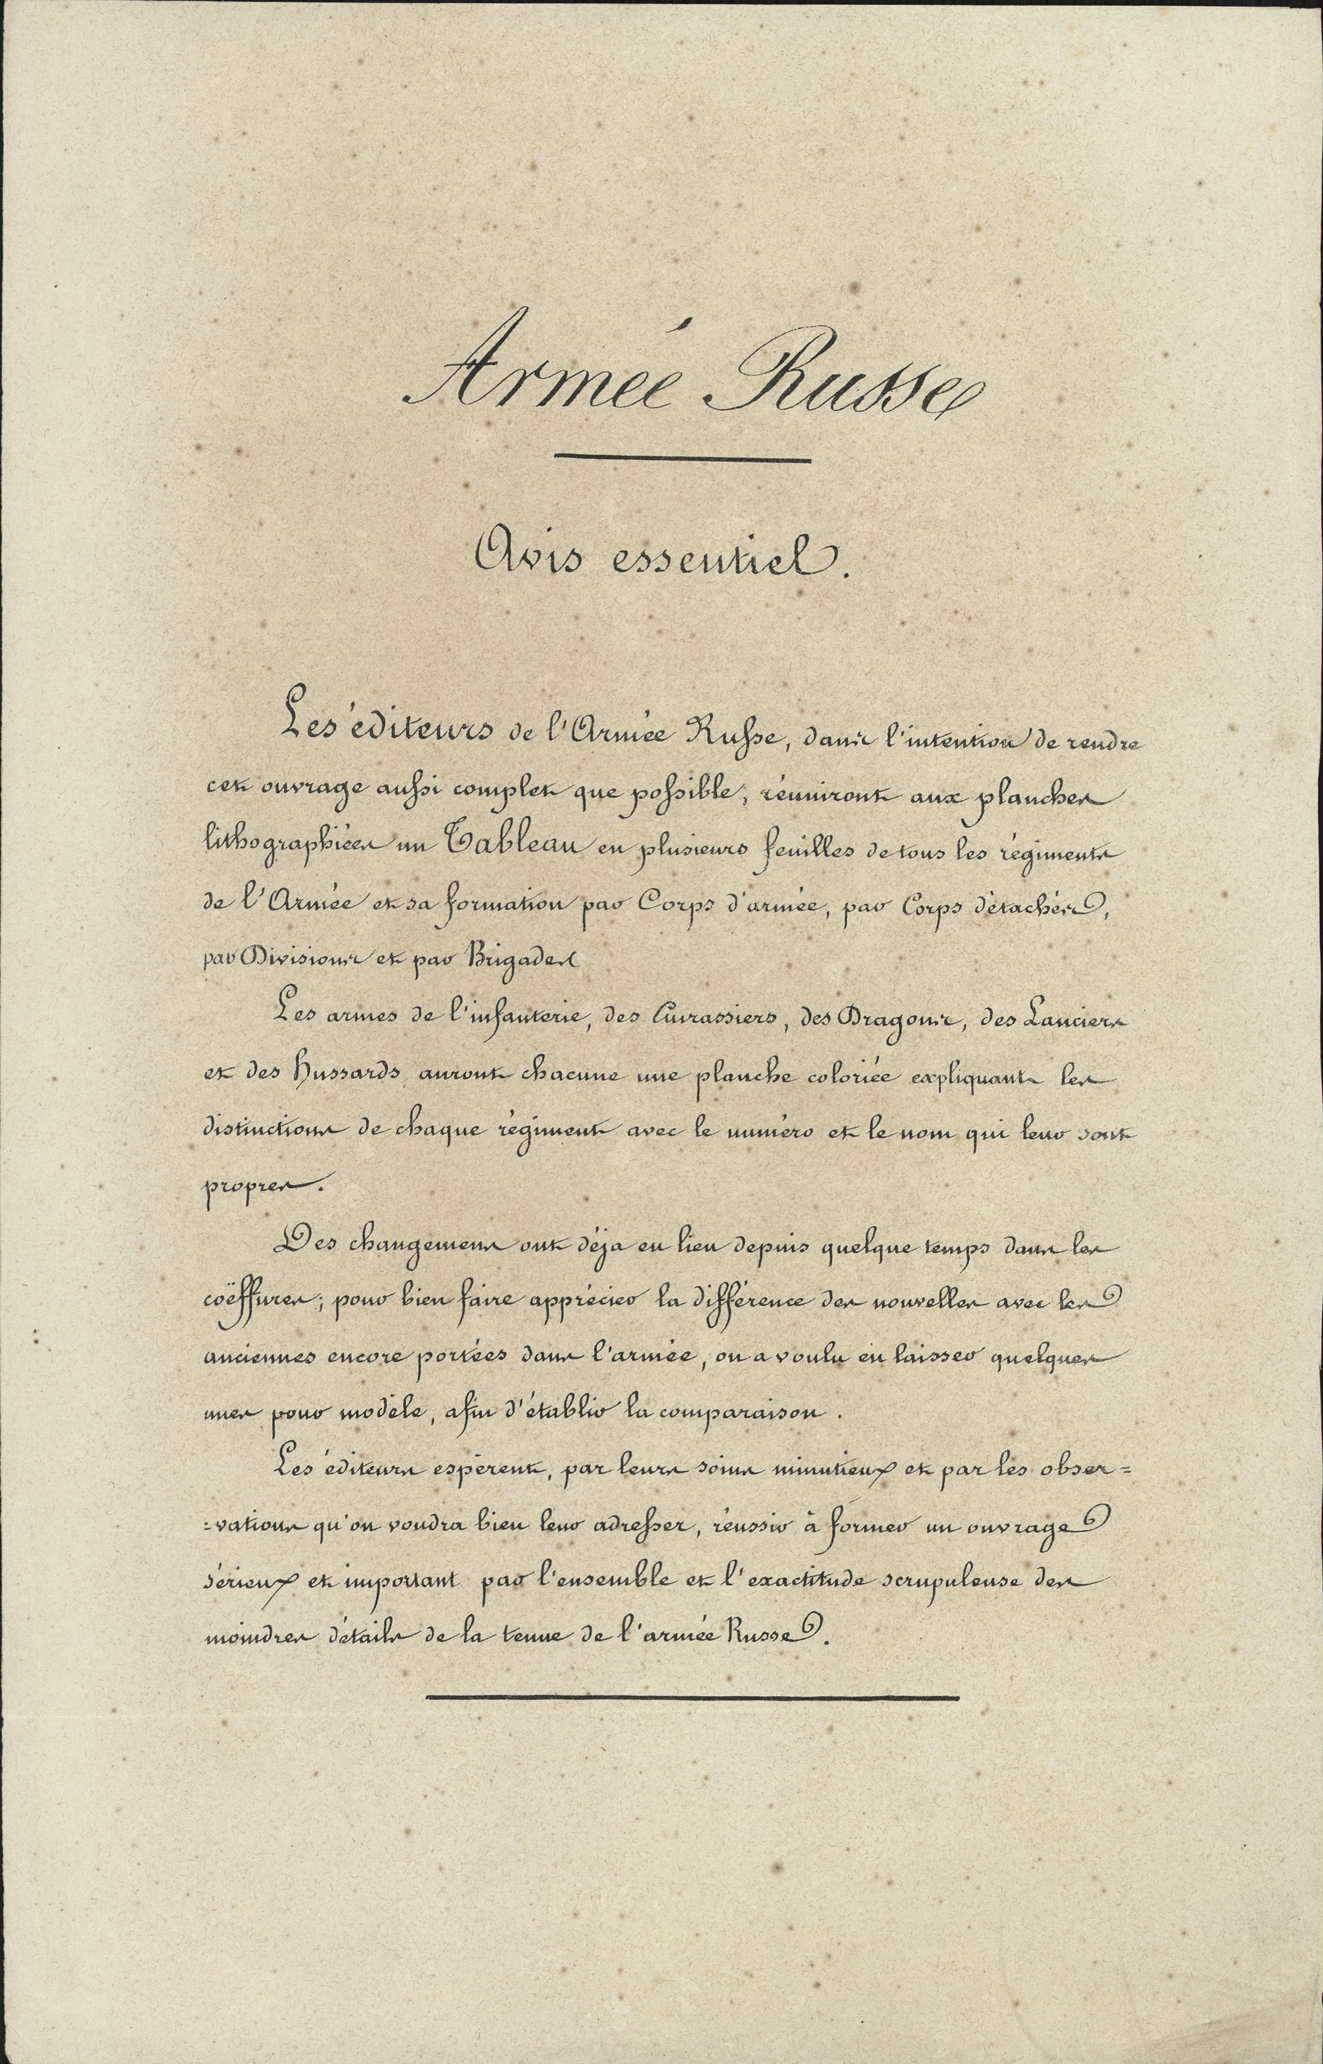 Armée Russe
Avis essentiel.
Les éditeurs de l'Armée Russe, dans l'intention de rendre
cet ouvrage aussi complet que possible, réuniront aux planches
lithographiées un Tableau en plusieurs feuilles de tous les régiments
de l'Armée et sa formation par Corps d'armée, par Corps détachés,
par Divisions et par Brigades
Les armes de l'infanterie, des Cuirassiers, des Dragons, des Lanciers
et des Hussards auront chacune une planche coloriée expliquant les
distinctions de chaque régiment avec le numéro et le nom qui leur sont
propres.
Des changemens ont déja eu lieu depuis quelque temps dans les
coëffures; pour bien faire apprécier la différence des nouvelles avec les
anciennes encore portées dans l'armée, on a voulu en laisser quelques
unes pour modèle, afin d'établir la comparaison.
Les éditeurs espèrent, par leurs soins minutieux et par les obser=
=vations qu'on voudra bien leur adresser, réussir à former un ouvrage
sérieux et important par l'ensemble et l'exactitude scrupuleuse des
moindres détails de la tenue de l'armée Russe.